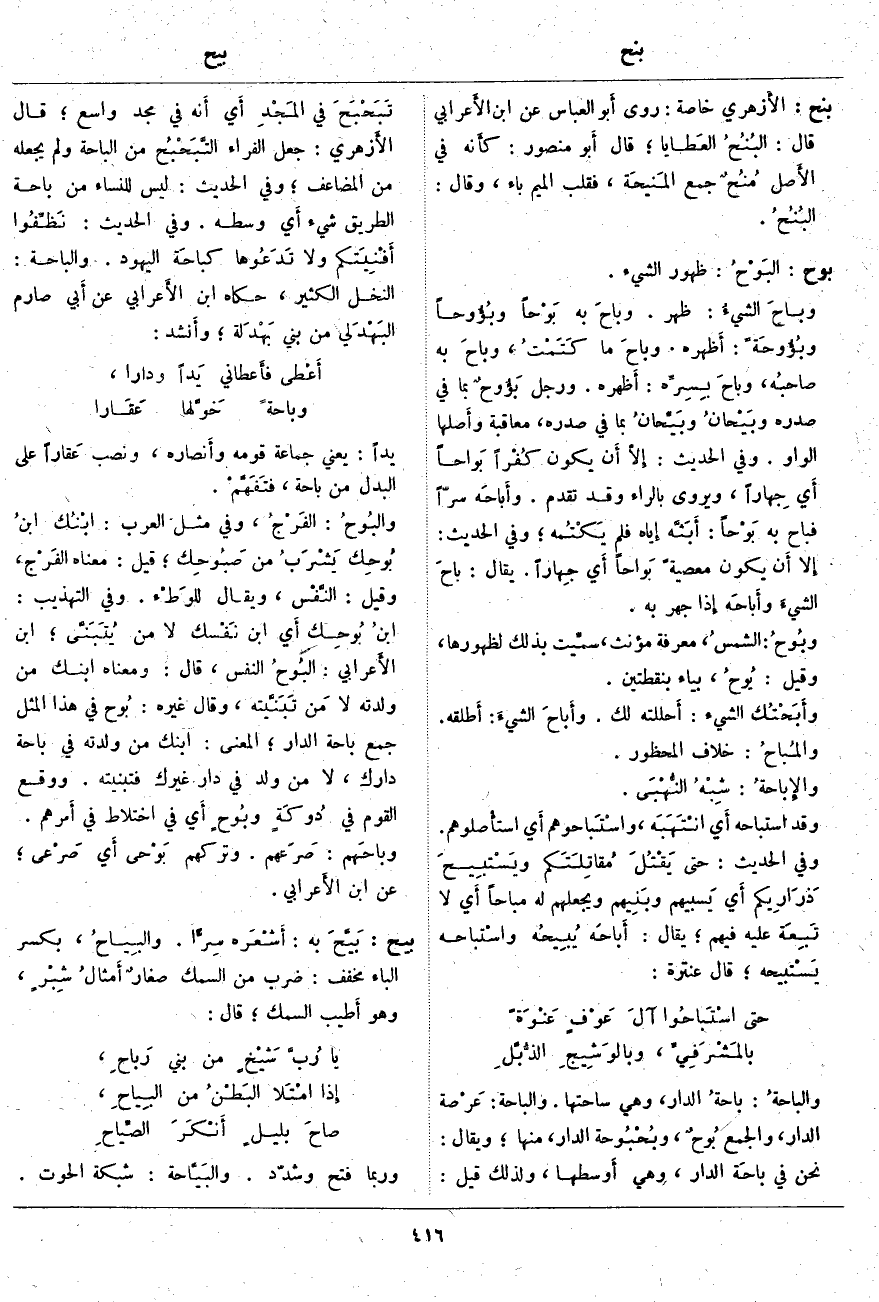 بنح
بيح
بنح : الأزهري خاصة : روى أبو العباس عن ابن الأعرابي
قال : البُنُحُ العَطايا ؛ قال أبو منصور : كأنه في
الأصل مُنُحٌ جمع المَنيحة ، فقلب الميم باء ، وقال :
البُنُحُ .
بوح : البَوْحُ : ظهور الشيء .
وباحَ الشيءُ : ظهر . وباحَ به بَوْحاً وبُؤُوحاً
وبُؤُوحَةً : أظهره . وباحَ ما كَتَمْتُ ، وباحَ به
صاحبُه ، وباحَ بِسِرِّه : أظهره . ورجل بَؤُوحٌ بما في
صدره وبَيْحانُ وبَيِّحانُ بما في صدره ، معاقبة وأصلها
الواو . وفي الحديث : إلاّ أن يكون كُفْراً بَواحاً
أي جِهاراً ، ويروى بالراء وقد تقدم . وأباحَه سرّاً
فباح به بَوْحاً : أبَثَّه إياه فلم يَكْتُمه ؛ وفي الحديث :
إلا أن يكون معصيةً بَواحاً أي جِهاراً . يقال : باحَ
الشيءَ وأباحَه إذا جهر به .
وبُوحُ : الشمسُ ، معرفة مؤنث ، سمِّيت بذلك لظهورها ،
وقيل : يُوحُ ، بياء بنقطتين .
وأبَحْتُك الشيءَ : أحللته لك . وأباحَ الشيءَ : أطلقه .
والمُباحُ : خلاف المحظور .
والإباحةُ : شِبْهُ النُّهْبَى .
وقد استباحه أي انْتَهَبَه ، واسْتَباحوهم أي استأصلوهم .
وفي الحديث : حتى يَقْتُلَ مُقاتِلَتَكم ويَسْتَبِيحَ
ذَرَارِيكم أي يَسبيهم وبَنيهم ويجعلهم له مباحاً أي لا
تَبِعَة عليه فيهم ؛ يقال : أباحَه يُبِيحُه واستباحه
يَسْتَبيحه ؛ قال عنترة :
حتى اسْتَباحُوا آلَ عَوْفٍ عَنْوَةً
بالمَشْرَفيِّ ، وبالوَشِيجِ الذُّبَّلِ
والباحةُ : باحةُ الدار ، وهي ساحتها . والباحة : عَرْصة
الدار ، والجمع بُوحٌ ، وبُحْبُوحة الدار ، منها ؛ ويقال :
نحن في باحَة الدار ، وهي أوسطها ، ولذلك قيل :
تَبَحْبَحَ في المَجْدِ أي أنه في مجد واسع ؛ قال
الأزهري : جعل الفراء التَّبَحْبُحَ من الباحة ولم يجعله
من المضاعف ؛ وفي الحديث : ليس للنساء من باحة
الطريق شيء أي وسطه . وفي الحديث : نَظِّفُوا
أفْنِيَتكم ولا تَدَعُوها كباحَة اليهود . والباحة :
النخل الكثير ، حكاه ابن الأعرابي عن أبي صارم
البَهْدَلي من بني بَهْدَلة ؛ وأنشد :
أعْطى فأعطاني يَداً ودارا ،
وباحةً خَوَّلها عَقَارا
يداً : يعني جماعة قومه وأنصاره ، ونصب عَقاراً على
البدل من باحة ، فتَفَهَّمْ .
والبُوحُ : الفَرْجُ ، وفي مثل العرب : ابْنُك ابنُ
بُوحِك يَشْرَبُ من صَبُوحِك ؛ قيل : معناه الفَرْج ،
وقيل : النَّفْس ، ويقال للوَطْء . وفي التهذيب :
ابنُ بُوحِك أي ابن نَفْسك لا من يُتَبَنَّى ؛ ابن
الأعرابي : البُوحُ النفس ، قال : ومعناه ابنك من
ولدته لا مَن تَبَنَّيته ، وقال غيره : بُوح في هذا المثل
جمع باحة الدار ؛ المعنى : ابنك من ولدته في باحة
دارك ، لا من ولد في دار غيرك فتبنيته . ووقع
القوم في دُوكَةٍ وبُوحٍ أي في اختلاط في أمرهم .
وباحَهم : صَرَعهم . وتركهم بَوْحَى أي صَرْعى ؛
عن ابن الأعرابي .
بيح : بَيَّحَ به : أشْعَرَه سِرّاً . والبِياحُ ، بكسر
الباء مخفف : ضرب من السمك صغارٌ أمثالُ شِبْرٍ ،
وهو أطيب السمك ؛ قال :
يا رُبَّ شَيْخٍ من بني رَباحِ ،
إذا امْتَلا البَطْنُ من البِياحِ ،
صاحَ بليلٍ أنْكَرَ الصِّياحِ
وربما فتح وشدّد . والبَيَّاحة : شبكة الحوت .
٤١٦